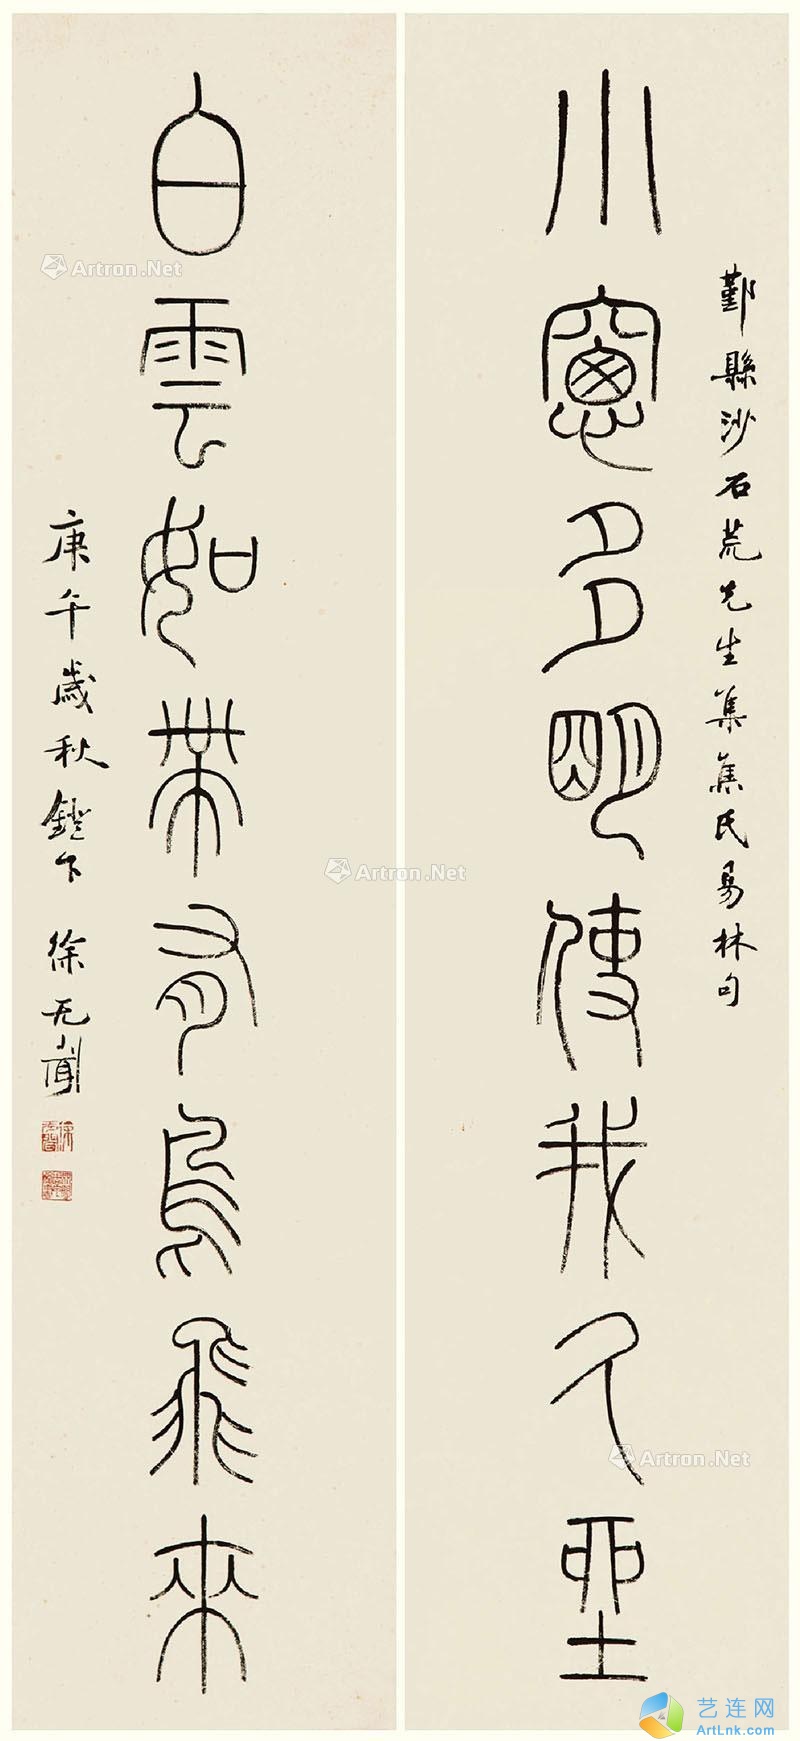 鄞縣沙石荒先生集焦氏易林句
小窻多明使我久坐
白雲如帶有鳥飛來
庚午歲秋鐙下 徐无聞
Artron.Net
Artron.Net
Artron.Net
艺连网
ArtLnk.com